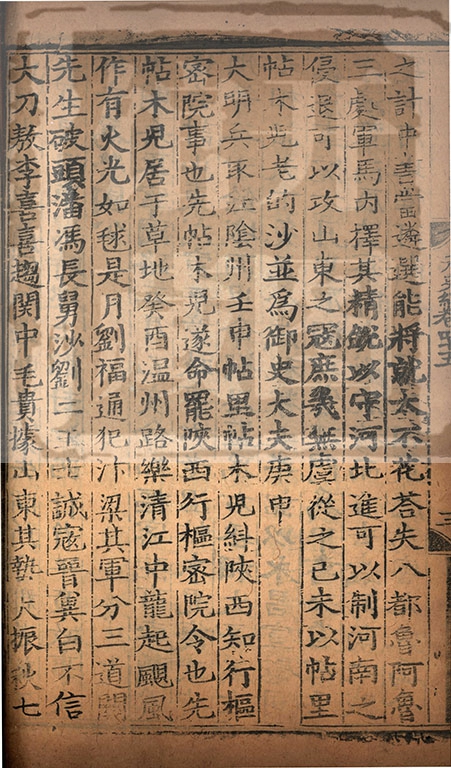 之計中書當遴選能將就太不花荅失八都魯阿魯
三處軍馬內擇其精銳以守河北進可以制河南之
侵退可以攻山東之寇庶幾無虞從之己未以帖里
帖木兒老的沙並為御史大夫庚申
大明兵取江陰州壬申帖里帖木兒糾陝西知行樞
密院事也先帖木兒遂命罷陝西行樞密院令也先
帖木兒居于草地癸酉温州路樂清江中龍起颶風
作有火光如毬是月劉福通犯汴梁其軍分三道關
先生破頭潘馮長舅沙劉二王士誠寇晉冀白不信
大刀敖李喜喜趨関中毛貴據山東其勢大振秋七
三